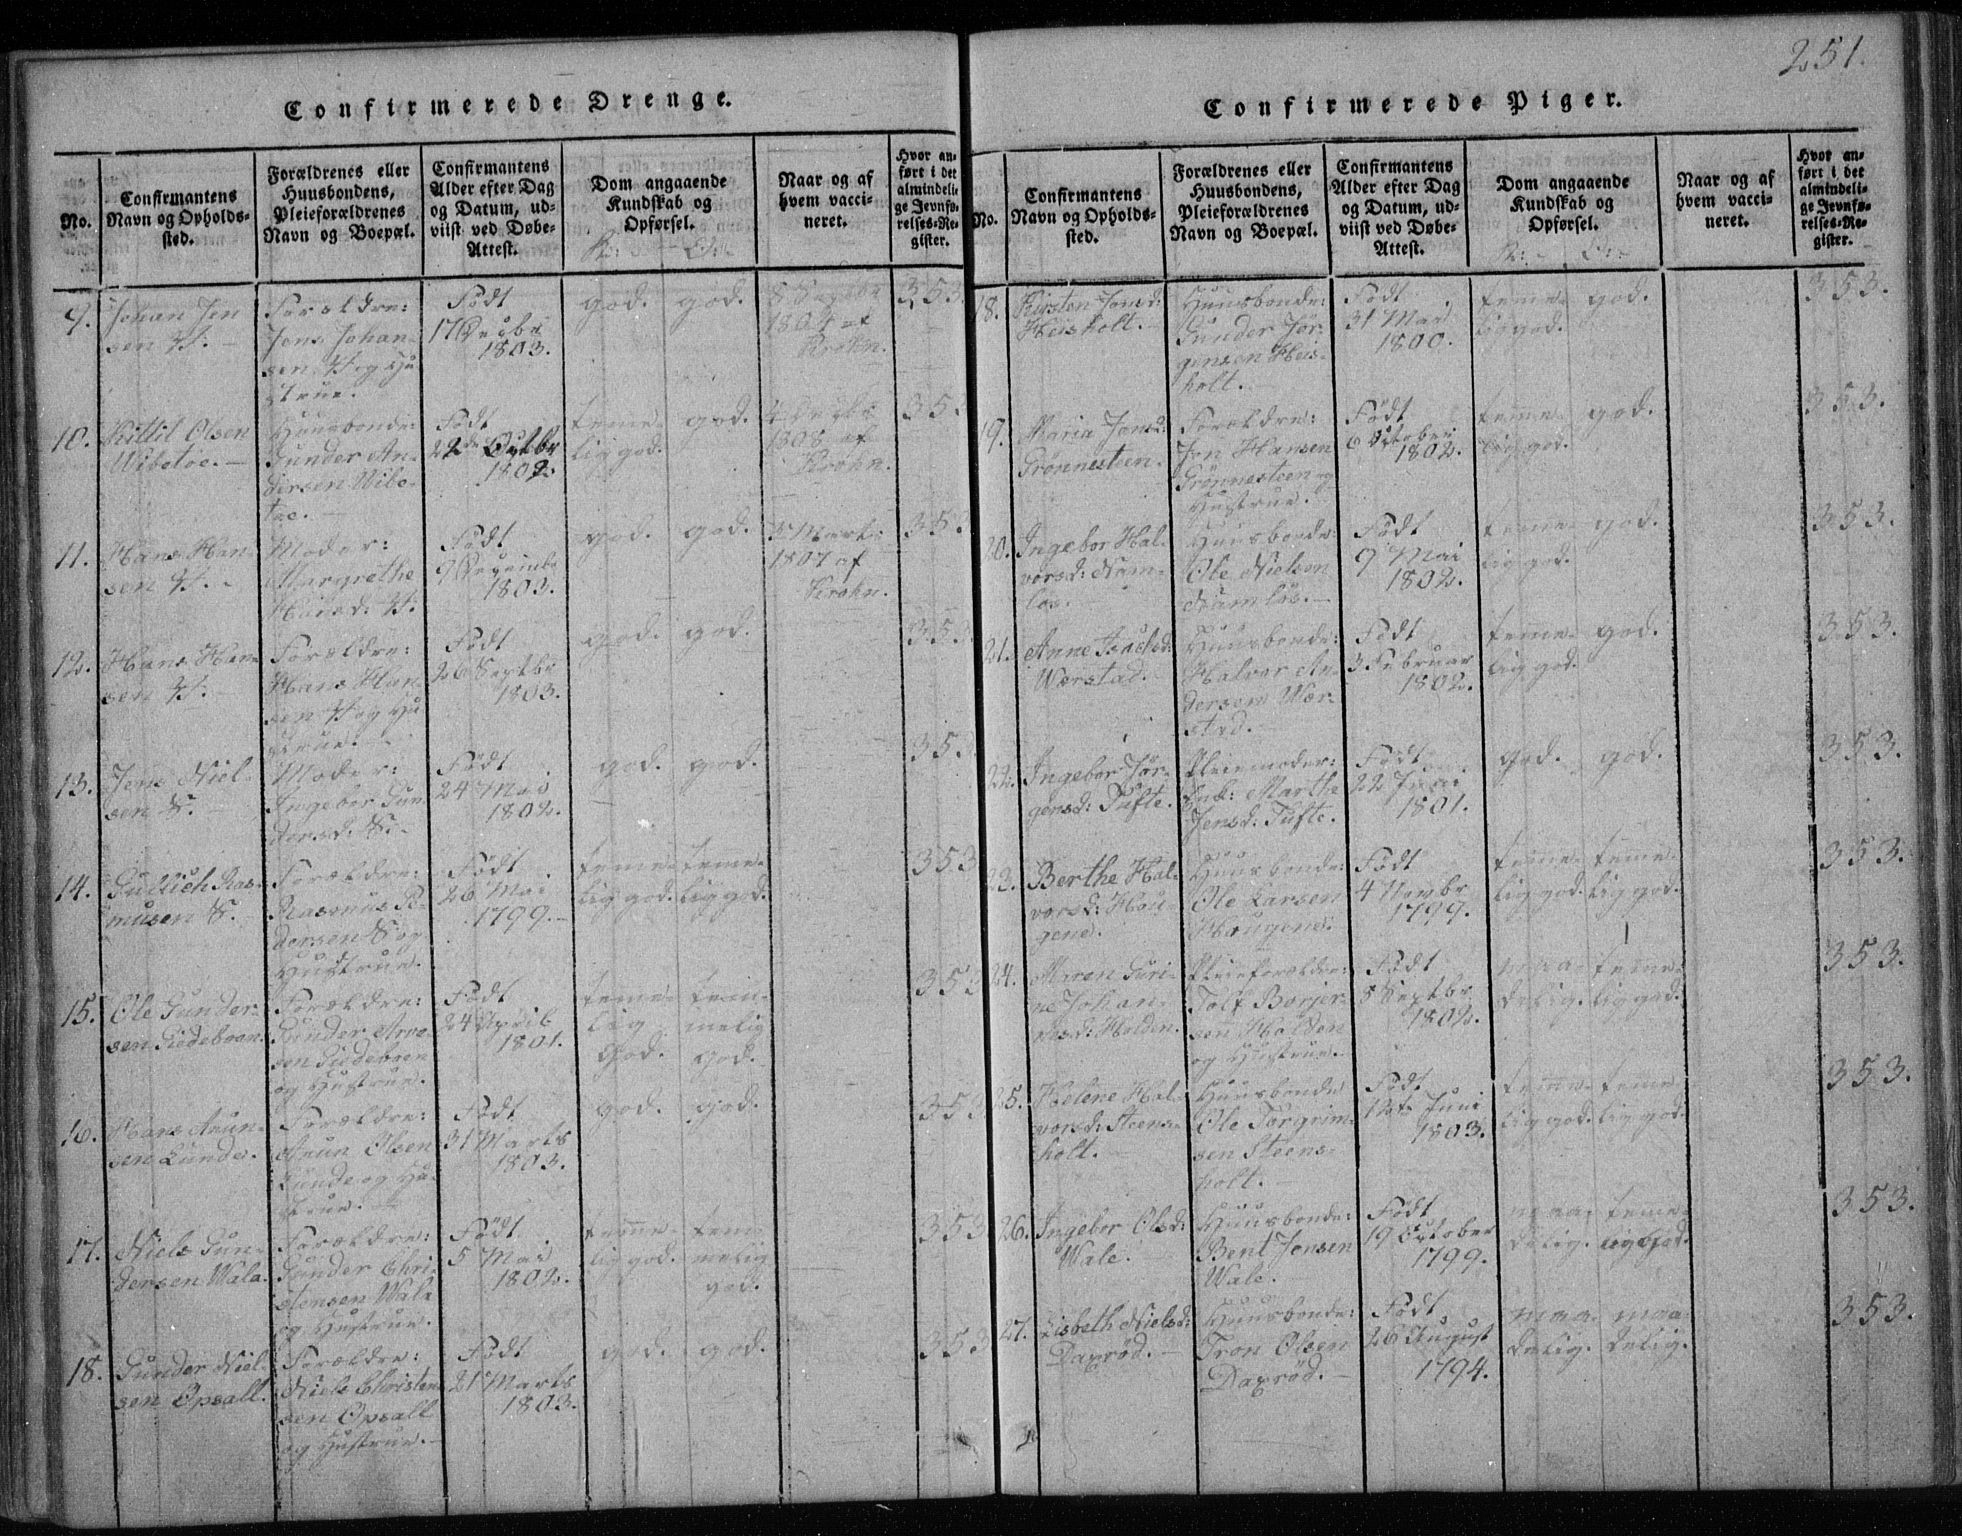 251.
Confirmerede Drenge.
No.
Confirmantens
Navn og Opholds-
sted.
Forældrenes eller
Huusbondens,
Pleieforældrenes
Navn og Boepæl.
Confirmantens
Alder efter Dag
og Datum, ud-
viist ved Døbe-
Attest.
Dom angaaende
Kundskab og
Opførsel.
K: - O:-
Naar og af
hvem vacci-
neret.
Hvor an-
ført i det
almindeli-
ge Jevnfø-
relses-Re-
gister.
9.
Johan Jen
sen
Forældre:
Jens Johan-
sen og Hu
strue.
Født
17 Decbr
1803.
god. god.
1804 af
Krohn.
353.
10.
Kittil Olsen
Wibetoe.
Huusbonde:
Gunder An-
dersen Wibe-
toe.
Født
22de Octbr
1802.
teme- god.
lig god.
1808 af
Krohn.
353
11.
Hans Han-
sen
Moder:
Margrethe
Født
9 Decemb
1803.
god. god.
3 Marts
1807 af
Krohn.
353
12.
Hans Han-
sen
Forældre:
Hans Han-
sen og Hu
strue.
Født
26 Septbr
1803.
god. god.
353
13.
Jens Niel-
sen S.
Moder:
Ingebor Gun
dersd. S.
Født
24 Mai
1802.
god. god.
353
14.
Gullich Ras-
musen S.
Forældre:
Rasmus P-
dersen S. og
Hustrue.
Født
26 Mai
1799.
teme- teme-
lig god. lig god.
353
15.
Ole Gunder-
sen Giedeboen.
Forældre:
Gunder Arve-
sen Giedeboen
og Hustrue.
Født
24 April
1801.
teme- tem-
lig melig
God. god.
353
16.
Hans Aaun-
sen Lunde.
Forældre:
Aaun Olsen
Lunde og Hu-
strue.
Født
31 Marts
1803.
god. god.
353
17.
Niels Gun-
dersen Wala.
Forældre:
Gunder Chri-
stensen Wala
og Hustrue.
Født
5 Mai
1802.
teme- tem
lig god. melig
god.
353
18.
Gunder Niel-
sen Opsall.
Forældre:
Niels Christen
sen Opsall
og Hustrue.
Født
21 Marts
1803.
god. god.
353
Confirmerede Piger.
No.
Confirmantens
Navn og Opholds-
sted.
Forældrenes eller
Huusbondens,
Pleieforældrenes
Navn og Boepæl.
Confirmantens
Alder efter Dag
og Datum, ud-
viist ved Døbe-
Attest.
Dom angaaende
Kundskab og
Opførsel.
K: - O:-
Naar og af
hvem vacci-
neret.
Hvor an-
ført i det
almindeli-
ge Jevnfø-
relses-Re-
gister.
18.
Kirsten Jonsd:
Heisholt.
Huusbonde:
Gunder Jør-
gensen Heis-
holt.
Født
31 Mai
1800.
teme- god.
lig god.
353.
19.
Maria Jonsd:
Grønnesteen.
Forældre:
Jon Hansen
Grønnesteen og
Hustrue.
Født
6 October
1802.
teme- god.
lig god.
353.
20.
Ingebor Hal-
vorsd: Nam-
løs.
Huusbonde:
Ole Nielsen
Namløs.
Født
9 Mai
1802.
teme- god.
lig god.
353.
21.
Anne Isachsd:
Wærstad.
Huusbonde:
Halvor An-
dersen Wær-
stad.
Født
3 Februar
1802.
teme- god.
lig god.
353.
22.
Ingebor Jør-
gensd: Tufte.
Pleiemoder:
Enk: Marthe
Jensd: Tufte.
Født
22 Juni
1801.
god. god.
353.
23.
Berthe Hal-
vorsd: Hou-
gene.
Huusbonde:
Ole Larsen
Haugene.
Født
4 Novbr
1799.
teme- teme-
lig god. lig god.
353.
24.
Maren Guri-
ne Johan-
nesd: Holden.
Pleieforældre:
Tolf Borjer-
sen Holden
og Hustrue.
Født
8 Septbr
1802.
maa- teme-
delig. lig god.
353.
25.
Helene Hal-
vorsd: Steens-
holt.
Huusbonde
Ole Torgrim-
sen Steens-
holt.
Født
Juni
1803.
teme- teme-
lig god. lig god.
353.
26.
Ingebor Olsd:
Wale.
Huusbonde:
Bent Jensen
Wale.
Født
19 October
1799.
maa- teme-
delig. lig god.
353.
27.
Lisbeth Nielsd:
Daxrød.
Huusbonde:
Tron Olsen
Daxrød.
Født
26 August
1794.
maa- maa-
delig. delig.
353.